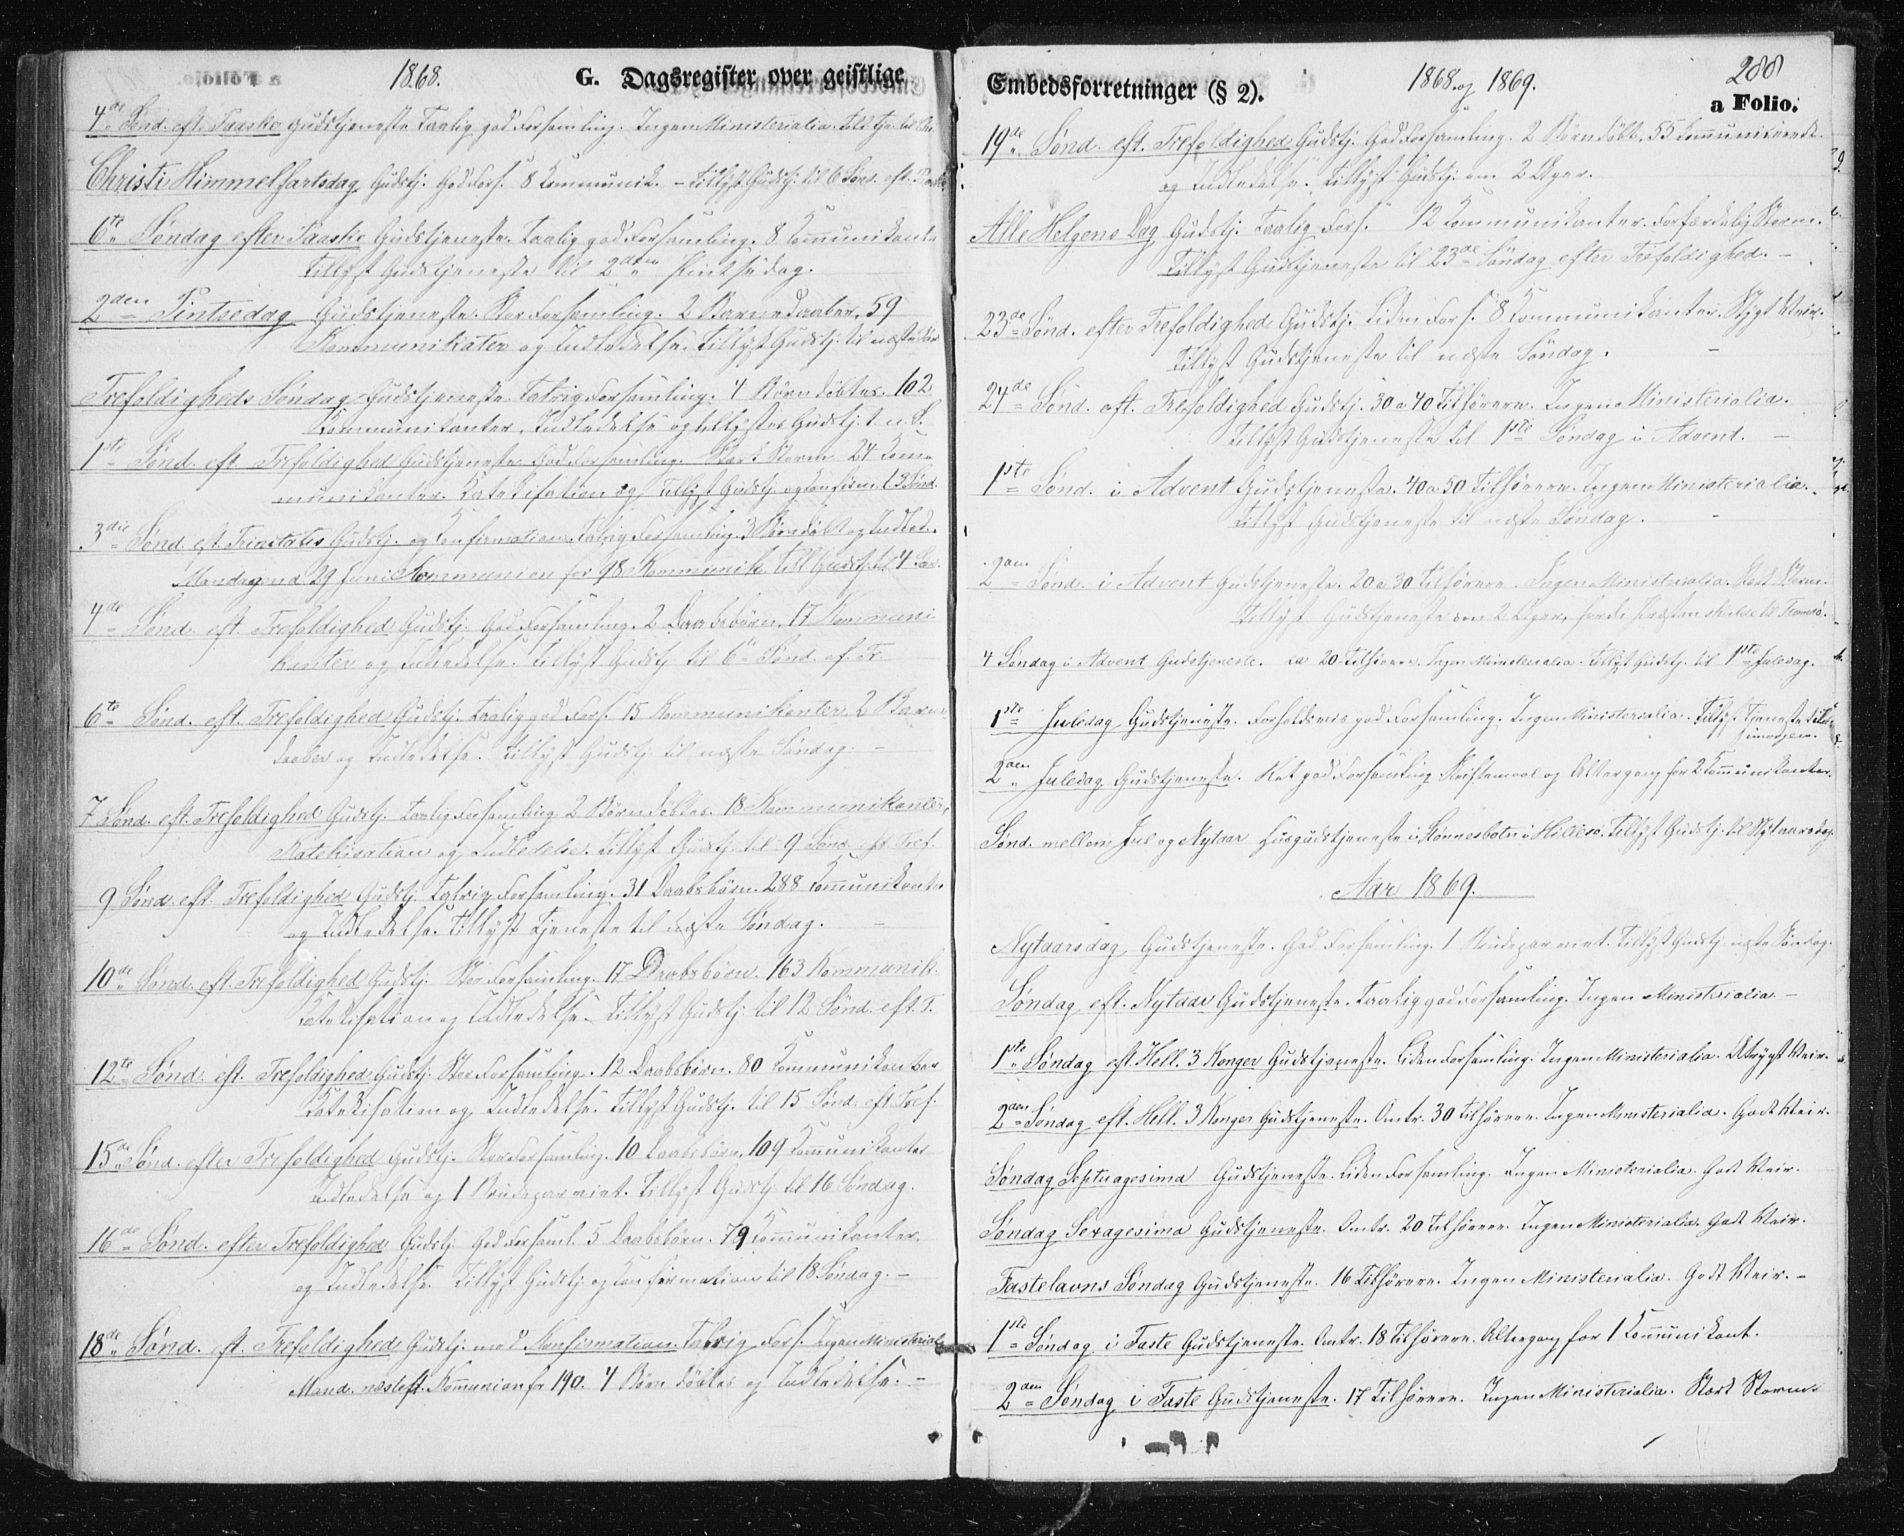 1868. G. Dagsregister over geistlige
4de Sønd. eft. Paaske Gudstjeneste Taalig god Forsamling. Ingen Ministerialia.
Christi Himmelfartsdag Gudstj. God Fors. 8 Kommunik. – Tillyst Gudstj. til 6 Sønd. eft. Paaske
6te Søndag efter Paaske Gudstjeneste. Taalig god Forsamling. 8 Communikanter
Tillyst Gudstjeneste til 2den Pintsedag.
2den Pintsedag Gudstjeneste. Stor Forsamling. 2 Barnedaaber, 59
Kommunikanter og Indledelse. Tillyst Gudstj. til næste Sønd
Trefoldigheds Søndag Gudstjeneste. Talrig Forsamling. 4 Børn døbtes. 102
Kommunikanter, Indledelse og tillystes Gudstj. t. n. S.
1ste Sønd. eft. Trefoldighed Gudstjeneste God Forsamling. Stærk Storm 24 Kom-
munikanter. Katekisation og Tillyst Gudstj. og Confirm. t. 3 Sønd.
3die Sønd. eft. Trinitatis Gudstj. og Confirmation. Talrig Forsamling. 3 Børn døbt og Indled.
Mandagen d. 29 Juni Kommunion for 98 Kommunik. Till. Gudst. til 4 Søn.
4de Sønd. eft. Trefoldighed Gudstj. God Forsamling. 2 Daabsbørn, 17 Kommuni
kanter og Indledelse. Tillyst Gudstj. til 6te Sønd. ef. Tr.
6te Sønd. eft. Trefoldighed Gudstj. Taalig god Fors. 15 Kommunikanter 2 Barne
daaber og Indledelse. Tillyst Gudstj. til næste Søndag. –
7 Sønd. eft. Trefoldighed Gudstj. Taalig Forsamling 2 Børn døbtes. 18 Kommunikanter,
Katekisation og Indledelse. Tillyst Gudstj. til 9 Sønd. eft. Tref.
9 Sønd. eft. Trefoldighed Gudstj. Talrig Forsamling. 31 Daabsbørn. 288 Communikanter
og Indledelse. Tillyst Tjeneste til næste Søndag. –
10de Sønd. eft. Trefoldighed Gudstj. Stor Forsamling. 17 Daabsbørn. 163 Kommunik.
Katekisation og Indledelse – Tillyst Gudstj. til 12 Sønd. eft. T.
12te Sønd. eft. Trefoldighed Gudstj. Stor Forsamling. 12 Daabsbørn. 80 Communikanter
Katekisation og Indledelse. Tillyst Gudstj. til 15 Sønd. eft. Tref.
15de Sønd. efter Trefoldighed Gudstj. Stor Forsamling. 10 Daabsbørn, 109 Communikanter
Indledelse og 1 Brudepar viet. Tillyst Gudstj. til 16 Søndag.
16de Sønd. efter Trefoldighed Gudstj. God Forsaml. 5 Daabsbørn. 79 Communikanter
og Indledelse. Tillyst Gudstj. og Confirmation til 18 Søndag. –
18de Sønd. eft. Trefoldighed Gudstj. med Konfirmation. Talrig Fors. Ingen Ministerial.
Mand. næsteft. Kommunion for 190. 4 Børn døbtes og Indledelse. –
Embedsforretninger (§ 2). 1868 og 1869. 288
a Folio.
19de Sønd. eft. Trefoldighed Gudstj. God Forsamling. 2 Børn døbt, 55 Communicerede.
og Indledelse. Tillyst Gudstj. om 2 Uger.
Alle Helgens Dag Gudstj. Taalig Fors. 12 Communikanter. Forfærdelig Storm.
Tillyst Gudstjeneste til 23de Søndag efter Trefoldighed. –
23de Sønd. efter Trefoldighed Gudstj. Liden Fors. 8 Communikanter. Stygt Veir.
Tillyst Gudstjeneste til næste Søndag. –
24de Sønd. eft. Trefoldighed Gudstj. 30 a 40 Tilhørere. Ingen Ministerialia.
Tillyst Gudstjeneste til 1ste Søndag i Advent. –
1ste Sønd. i Advent Gudstjeneste. 40 a 50 Tilhørere. Ingen Ministerialia.
Tillyst Gudstjeneste til næste Søndag. –
2den Sønd. i Advent Gudstjeneste. 20 a 30 Tilhørere. Ingen Ministerialia. Stærk Storm.
Tillyst Gudstjeneste om 2 Uger, fordi Præsten skulde til Tromsø.
4 Søndag i Advent Gudstjeneste. ca 20 Tilhørere. Ingen Ministerialia. Tillyst Gudstj. til 1ste Juledag.
1ste Juledag Gudstjeneste. Forholdsvis god Forsamling. Ingen Ministerialia. Tillyst Tjeneste til
imorgen.
2den Juledag. Gudstjeneste. Ret god Forsamling Skriftemaal og Altergang for 2 Communikanter.
Sønd. mellem Jul og Nytaar Husgudstjeneste i Stonnesbotn i Hillesø. Tillyst Gudstj. til Nytaarsdag.
Aar 1869.
Nytaarsdag. Gudstjeneste. God Forsamling. 1 Brudepar viet. Tillyst Gudstj. næste Søndag.
Søndag eft. Nytaar Gudstjeneste. Taalig god Forsamling. Ingen Ministerialia –
1ste Søndag eft. Hell. 3 Konger Gudstjeneste. Liden Forsamling. Ingen Ministerialia. Utrygt Veir.
2den Søndag eft. Hell. 3 Konger Gudstjeneste. Omtr. 30 Tilhørere. Ingen Ministerialia. Godt Veir.
Søndag Septuagesima Gudstjeneste. Liden Forsamling. Ingen Ministerialia. Godt Veir.
Søndag Sexagesima Gudstjeneste. Omtr. 20 Tilhørere. Ingen Ministerialia. Godt Veir.
Fastelavns Søndag Gudstjeneste. 16 Tilhørere. Ingen Ministerialia. Godt Veir. –
1ste Søndag i Faste Gudstjeneste. Omtr. 18 Tilhørere. Altergang for 1 Communikant.
2den Søndag i Faste Gudstjeneste. 17 Tilhørere. Ingen Ministerialia. Stærk Storm.